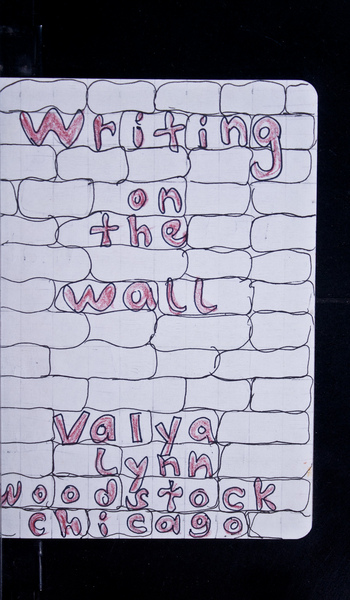 Writing
on
the
wall
Valya
Lynn
woodstock
chicago